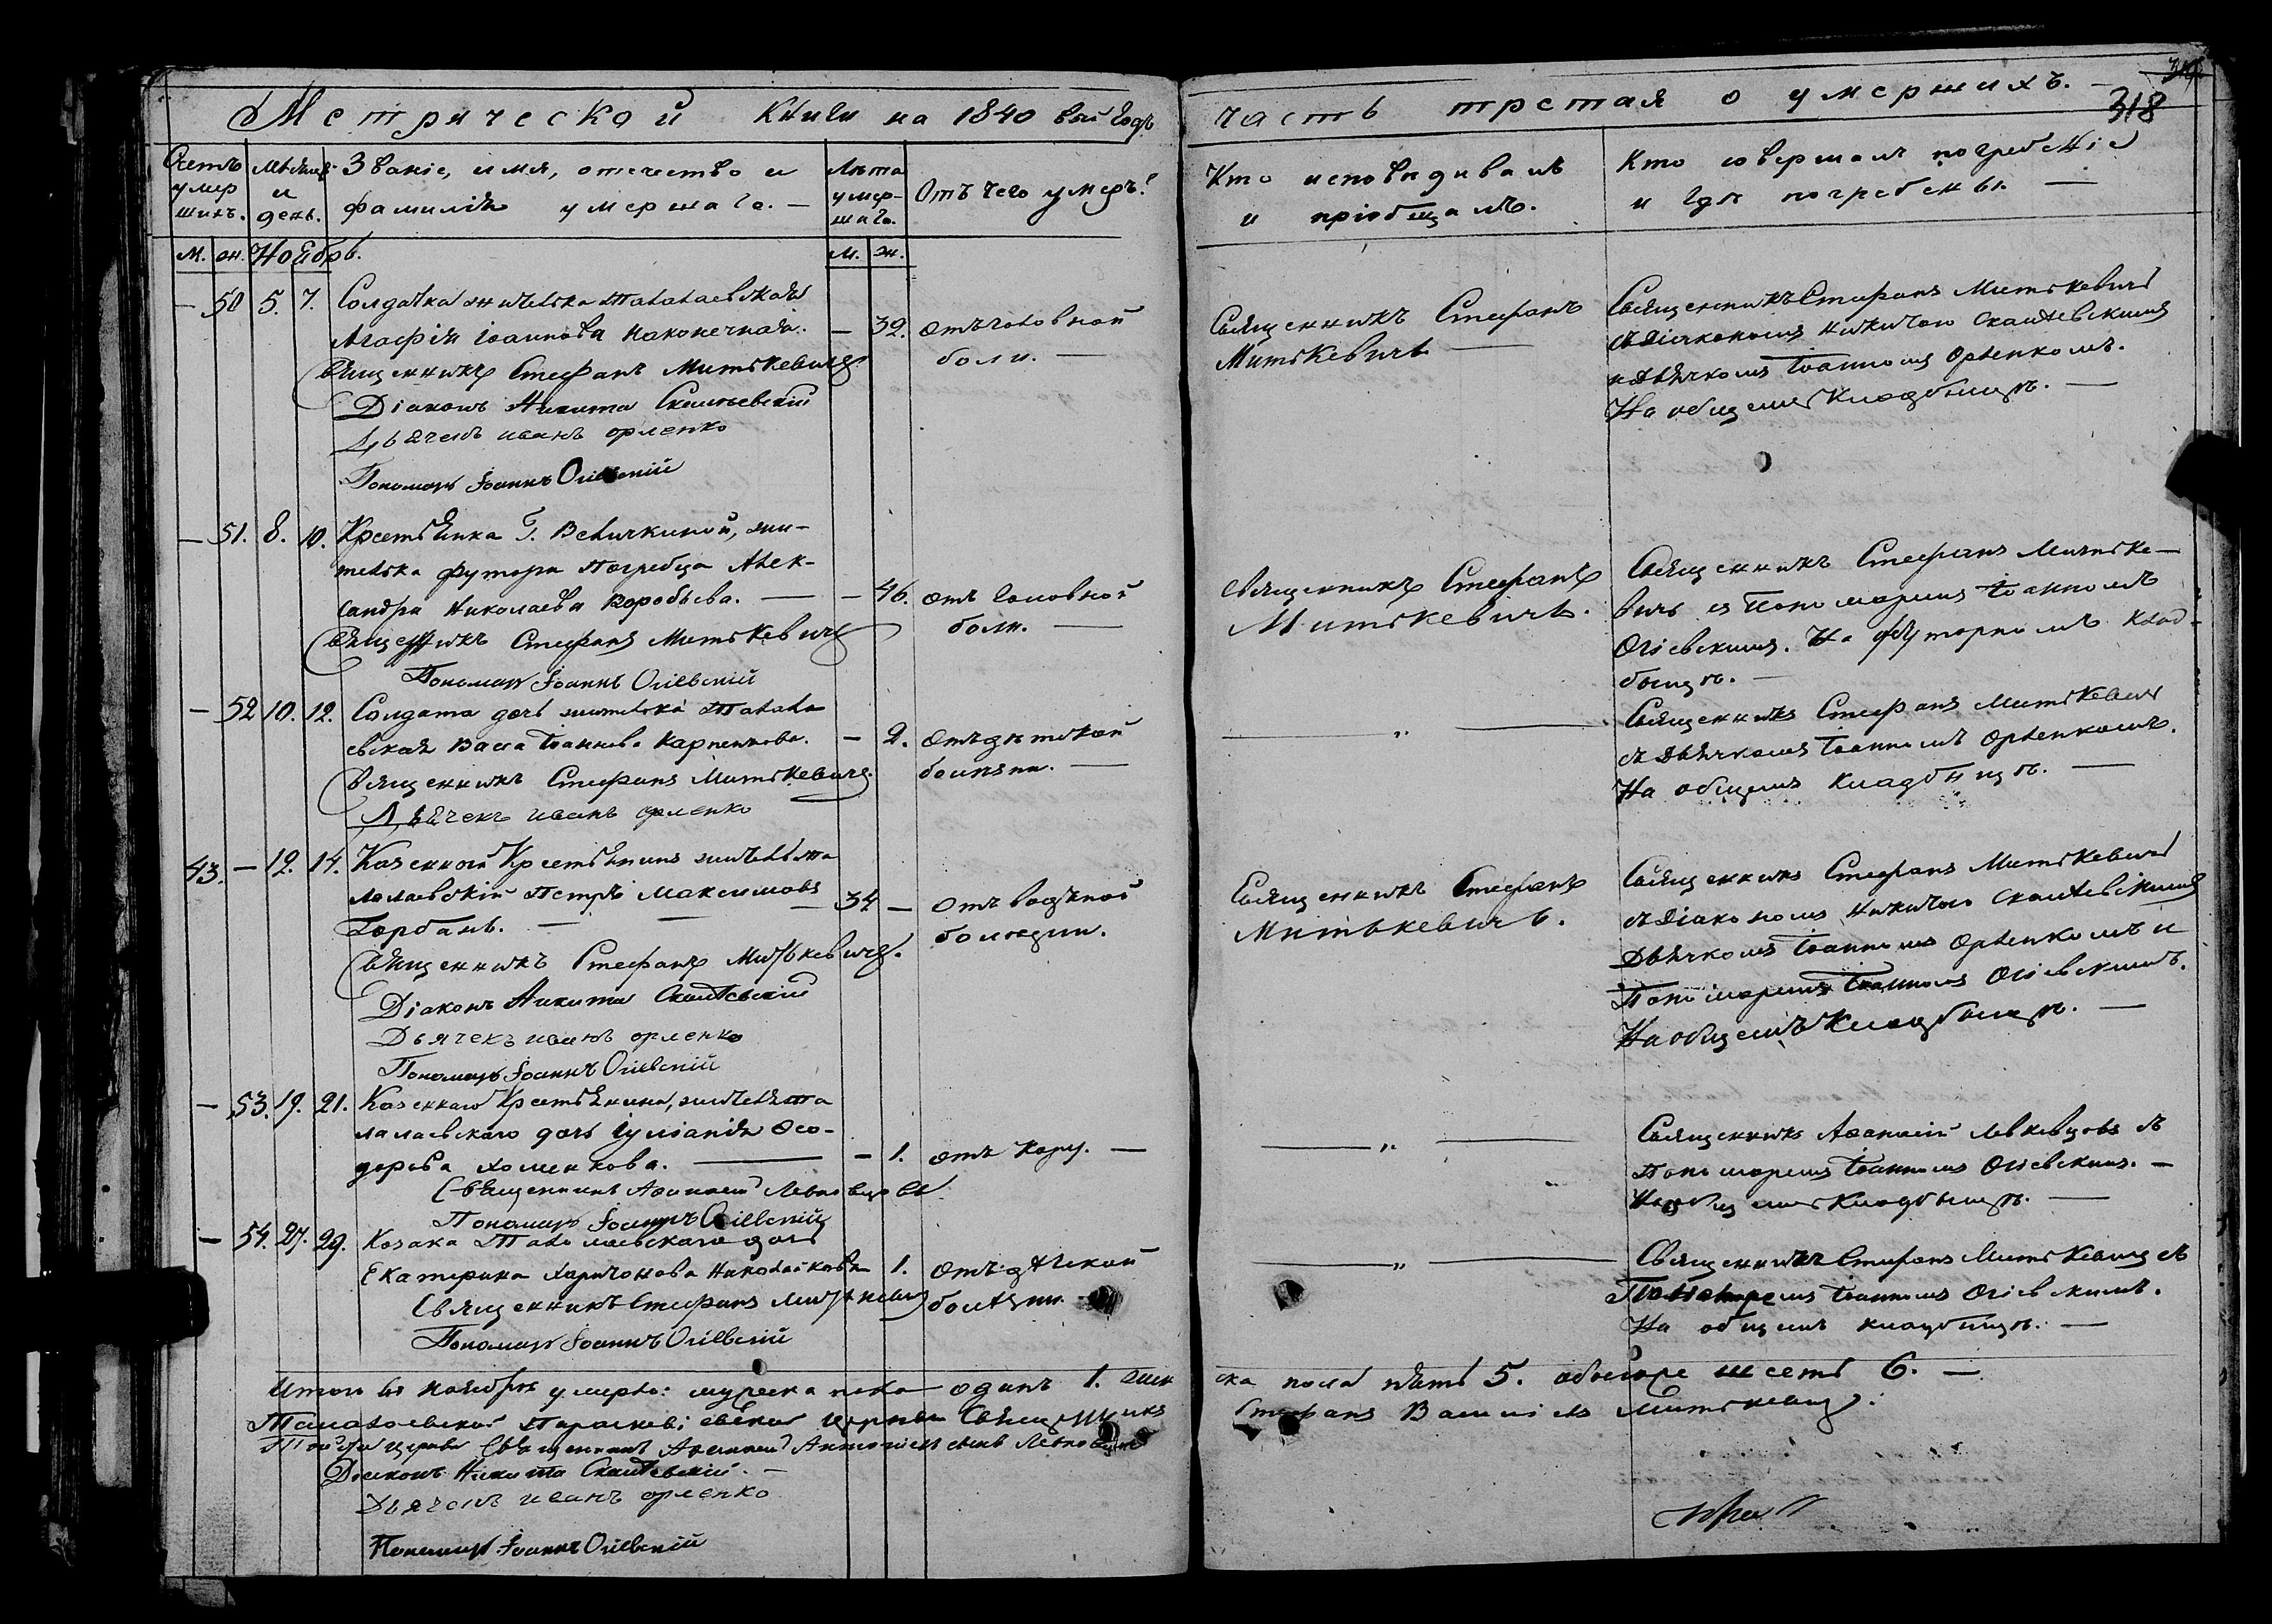 Метрической книги на 1840 вый годъ
Счетъ умершихъ. Мѣсяцъ и день. Званіе, имя, отечество и фамилія умершаго. — Лѣта умершаго. Отъ чего умеръ?
м. ж. Ноябрь. м. ж.
— 50 5. 7. Солдатка жителька
Агафія Іоаннова Наконечная. — 39. отъ головной
боли. —
Священникъ Стефанъ Митькевичъ
Діаконъ Никита
Дьячекъ иванъ орленко
Пономарь Іоаннъ Огіевскій
— 51. 8. 10. Крестьянка Г. Величкиной, жи-
телька футора Погребца Алек-
сандра Николаева Воробьева. — — 46. отъ головной
боли. —
Священникъ Стефанъ Митькевичъ
Пономарь Іоаннъ Огіевскій
— 52 10. 12. Солдата дочь жителька Талала
евская Васса Іоаннова Карпенкова. — 2. отъ дѣтской
болѣзни. —
Священникъ Стефанъ Митькевичъ.
Дьячекъ иванъ орленко
43. — 12. 14. Казенный Крестьянинъ житель та
лалаевскій Петръ Максимовъ — 34 — отъ водяной
Горбань. — болѣзни.
Священникъ Стефанъ Митькевичъ.
Діаконъ Никита
Дьячекъ иванъ орленко
Пономарь Іоаннъ Огіевскій
— 53. 19. 21. Казеннаго Крестьянина, жителя та
лалаевскаго дочь Іуліанія Ѳео-
дорова Хоменкова. — — 1. отъ кору. —
Священникъ Аѳанасій Левковцовъ
Пономарь Іоаннъ Огіевскій
— 54. 27. 29. Козака Талалаевскаго дочь
Екатерина Харитонова 1. отъ дѣтской
Священникъ Стефанъ Митькевичъ болѣзни.
Пономарь Іоаннъ Огіевскій
Итого въ Ноябрѣ умерло: мужеска пола одинъ 1. жен
Талалаевской церкви Священникъ
Той же церкви Священникъ Аѳанасій
Діаконъ Никита
Дьячекъ иванъ орленко
Пономарь Іоаннъ Огіевскій
часть третая о умершихъ. —
318
Кто исповѣдивалъ и пріобщалъ. Кто совершалъ погребеніе и гдѣ погребены. —
Священникъ Стефанъ
Митькевичъ —
Священникъ Стефанъ Митькевичъ
съ Діакономъ Никитою
и Дьячкомъ Іоанномъ Орленкомъ.
На общемъ кладбищѣ. —
Священникъ Стефанъ
Митькевичъ.
Священникъ Стефанъ Митьке-
вичъ съ Пономаремъ Іоанномъ
Огіевскимъ. На футорномъ клад-
бищѣ. —
— „ —
Священникъ Стефанъ Митькевичъ
съ Дьячкомъ Іоанномъ Орленкомъ.
На общемъ кладбищѣ. —
Священникъ Стефанъ
Митькевичъ.
Священникъ Стефанъ Митькевичъ
съ Діакономъ Никитою
Дьячкомъ Іоанномъ Орленкомъ и
Пономаремъ Іоанномъ Огіевскимъ.
На общемъ кладбищѣ. —
— „ —
Священникъ Аѳанасій Левковцовъ съ
Пономаремъ Іоанномъ Огіевскимъ. —
На общемъ кладбищѣ. —
— „ —
Священникъ Стефанъ Митькевичъ съ
Пономаремъ Іоанномъ Огіевскимъ.
На общемъ кладбищѣ. —
ска пола пять 5. обоегоре шесть 6. —
Стефанъ Митькевичъ.